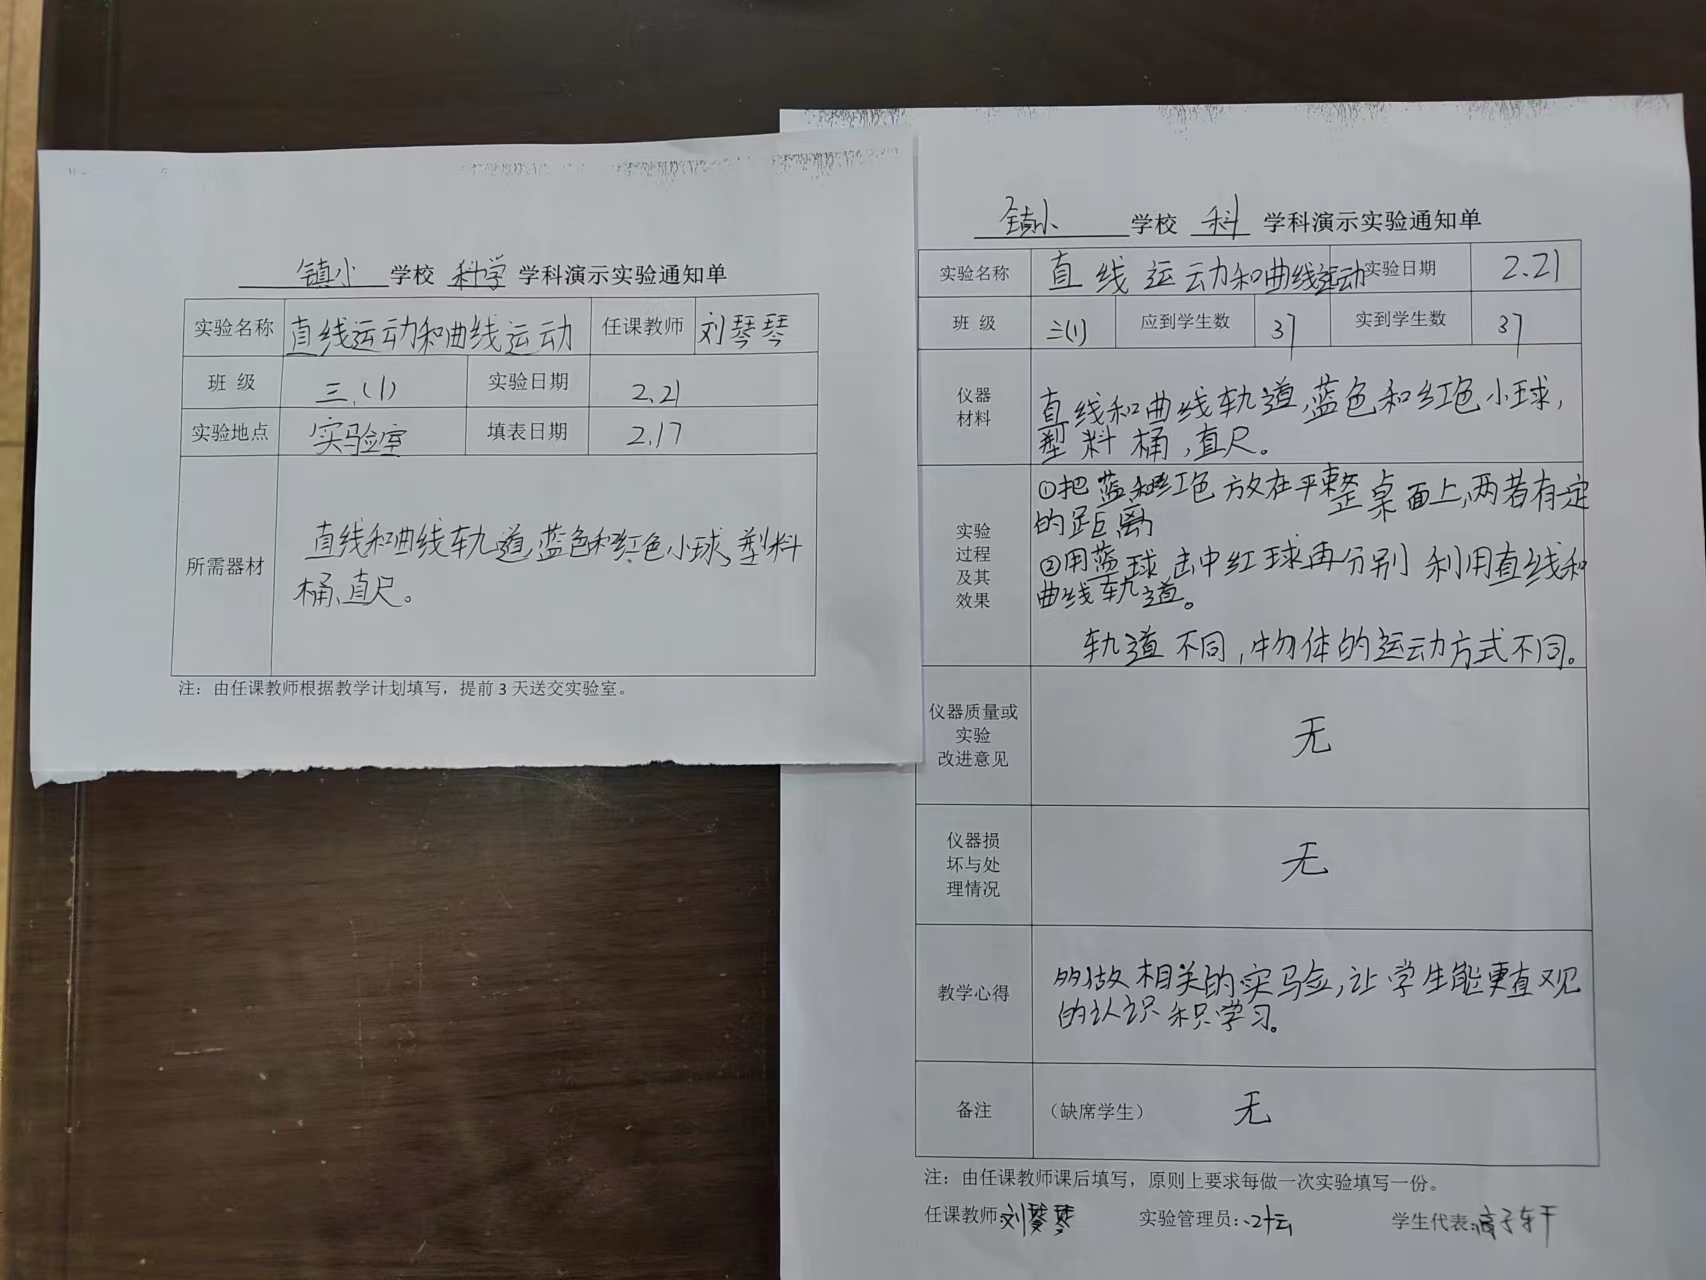 镇小 学校 科学 学科演示实验通知单
实验名称 直线运动和曲线运动 任课教师 刘琴琴
班 级 三.(1) 实验日期 2.21
实验地点 实验室 填表日期 2.17
所需器材
直线和曲线轨道、蓝色和红色小球、塑料
桶、直尺。
注：由任课教师根据教学计划填写，提前 3 天送交实验室。
镇小 学校 科 学科演示实验通知单
实验名称 直线运动和曲线运动 实验日期 2.21
班 级 三(1) 应到学生数 37 实到学生数 37
仪器
材料
直线和曲线轨道,蓝色和红色小球,
塑料桶,直尺。
实验
过程
及其
效果
①把蓝和红色放在平整桌面上,两者有一定
的距离
②用蓝球击中红球再分别利用直线和
曲线轨道。
轨道不同,物体的运动方式不同。
仪器质量或
实验
改进意见
无
仪器损
坏与处
理情况
无
教学心得
多做相关的实验,让学生能更直观
的认识和学习。
备注 （缺席学生） 无
注：由任课教师课后填写，原则上要求每做一次实验填写一份。
任课教师:刘琴琴 实验管理员: 学生代表: